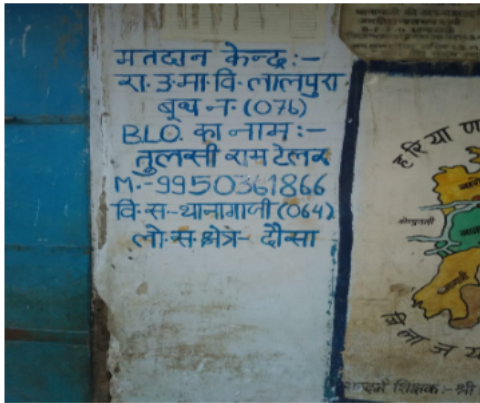 मतदान केन्द्र:-
रा.उ.मा.वि. लालपुरा
बूथ न. (076)
B.L.O. का नाम:-
तुलसी राम टेलर
M.-9950361866
वि.स.-थानागाजी (064)
लो.स.क्षेत्र- दौसा
हरियाण
शिक्षक:- श्री